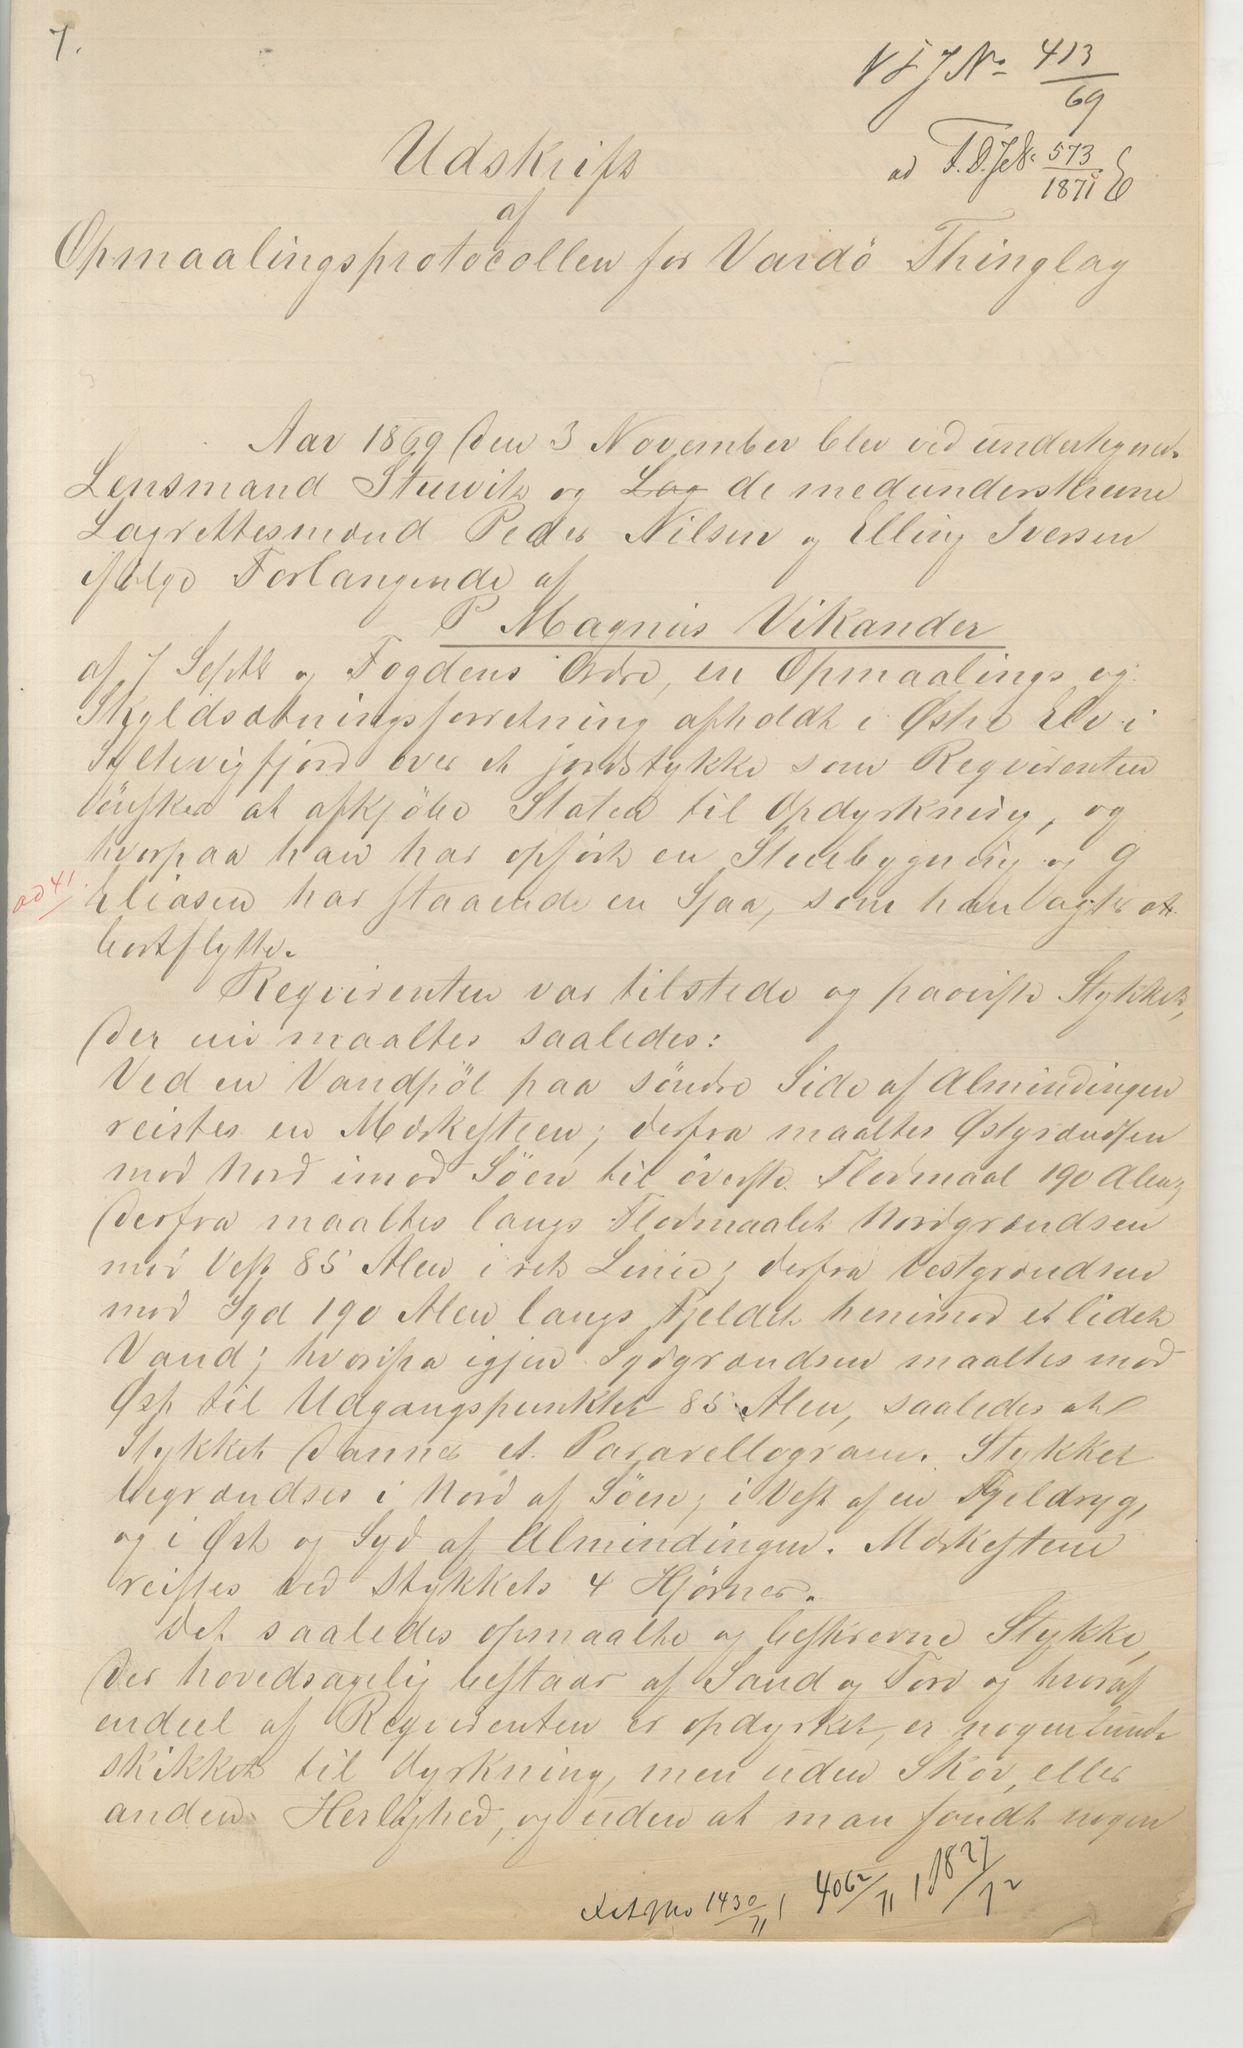 7.
N & J No 413/69
ad F.D.J.No 573/1871 E
Udskrift
af
Opmaalingsprotocollen for Vardö Thinglag
Aar 1869 den 3 November blev ved undertegnede
Lensmand Stuwitz og Lag de medunderskrevne
Lagrettesmænd Peder Nilsen og Elling Iversen
ifølge Forlangende af
P Magnus Vikander
af 7 Septb og Fogdens Ordre, en Opmaalings og
Skyldsætningsforretning afholdt i Østre Elv i
Syltevigfjord over et jordstykke som Reqvirenten
önsker at afkjöbe Staten til Opdyrkning, og
hvorpaa han har opfört en Stuebygning og G
ad 41.
Eliasen har staaende en Sjaa, som han agter at
bortflytte.
Reqvirenten var tilstede og paaviste Stykket,
der nu maaltes saaledes:
Ved en Vandpöl paa söndre Side af Almindingen
reistes en Mærkesteen; derfra maaltes Østgrændsen
mod Nord imod Söen til överste Flodmaal 190 Alen;
derfra maaltes langs Flodmaalet Nordgrændsen
mod Vest 85 Alen i ret Linie; derfra Vestgrændsen
mod Syd 190 Alen langs Fjeldet henimod et lidet
Vand; hvorfra igjen Sydgrændsen maaltes mod
Øst til Udgangspunktet 85 Alen, saaledes at
Stykket danner et Pararellogram. Stykket
begrændses i Nord af Söen; i Vest af en Fjeldryg,
og i Øst og Syd af Almindingen. Mærkestene
reistes ved Stykkets 4 Hjörner.
Det saaledes opmaalte og beskrevne Stykke,
der hovedsagelig bestaar af Sand og Torv og hvoraf
endeel af Reqvirenten er opdyrket, er nogenlunde
skikket til dyrkning, men uden Skov, eller
anden Herlighed, og uden at man fandt nogen
Ext No 1430/71, 4062/71, 1827/72